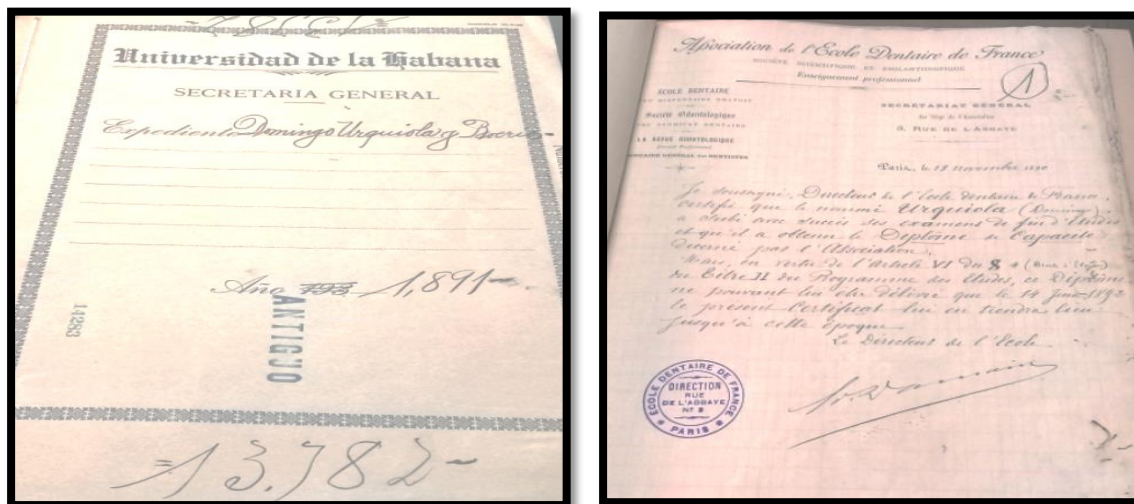 Universidad de la Habana
SECRETARIA GENERAL
Expediente Domingo Urquiola y
Año 193 1,891-
14283
ANTIGUO
=13.782-
Association de l'Ecole Dentaire de France
SOCIÉTÉ SCIENTIFIQUE ET PHILANTHROPIQUE
Enseignement professionnel
1
ECOLE DENTAIRE
ET DISPENSAIRE GRATUIT
Société Odontologique
SYNDICAT DENTAIRE
LA REVUE ODONTOLOGIQUE
SECRÉTARIAT GÉNÉRAL
Au Siège de l'Association
3, RUE DE L'ABBAYE
Paris, le 18 novembre 1890
Je soussigné, Directeur de l'Ecole dentaire de France,
certifie que le nommé Urquiola (Domingo)
a subi avec succès ses examens de fin d'études
et qu'il a obtenu le Diplôme de Capacité
décerné par l'Association.
Mais, en vertu de l'Article VI du § 4
du Titre II du Programme des Etudes, ce Diplôme
ne pouvant lui être délivré que le 14 1892
le présent Certificat lui en tiendra lieu
jusqu'à cette époque
Le Directeur de l'Ecole
ECOLE DENTAIRE DE FRANCE
DIRECTION
RUE
DE L'ABBAYE
Nº 3
PARIS